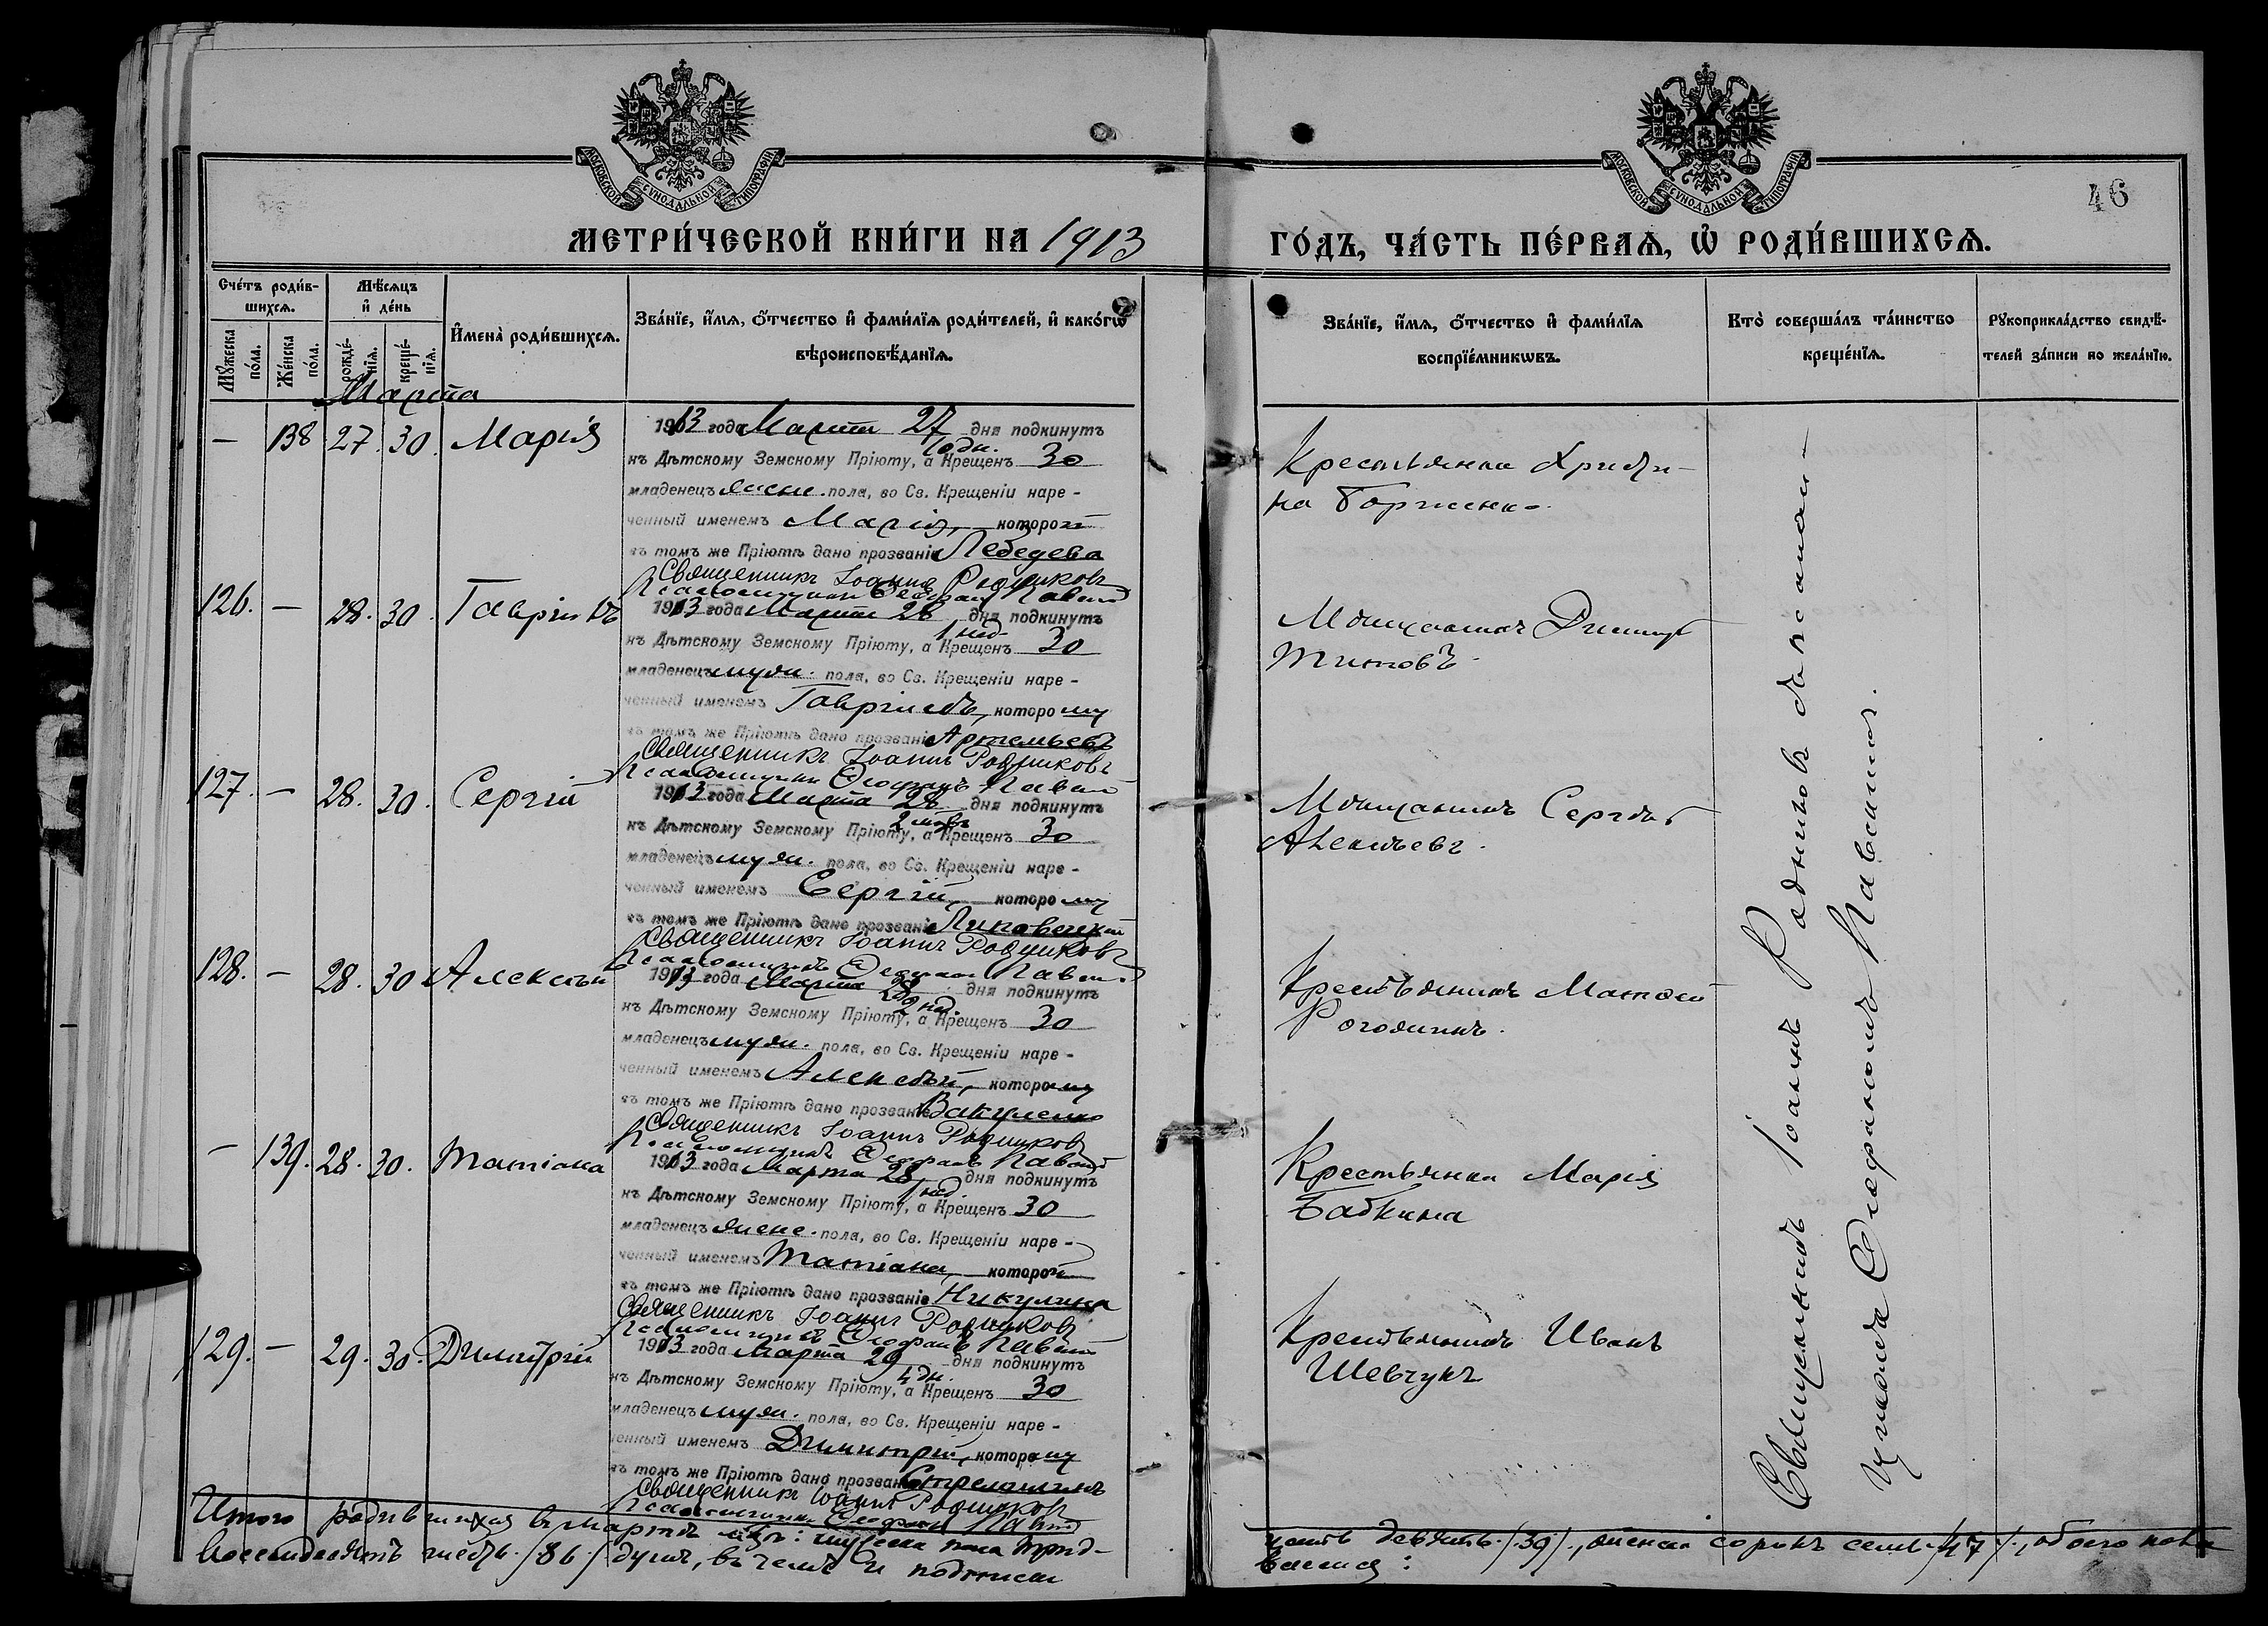 МОСКОВСКОЙ СУНОДАЛЬНОЙ ТИПОГРАФІИ
МОСКОВСКОЙ СУНОДАЛЬНОЙ ТИПОГРАФІИ
46
МЕТРИ́ЧЕСКОЙ КНИ́ГИ НА 1913
ГО́ДЪ, ЧА́СТЬ ПЕ́РВАѦ, Ѡ РОДИ́ВШИХСѦ.
Сче́тъ роди́в-
шихсѧ.
Мꙋжеска
по́ла.
Же́нска
по́ла.
Мѣ́сѧцъ
и҆ де́нь
рожде́-
нїѧ.
креще́-
нїѧ.
И҆мена̀ роди́вшихсѧ.
Зва́нїе, и҆́мѧ, ѻ҆́тчество и҆ фами́лїѧ роди́телей, и҆ како́гѡ
вѣроисповѣ́данїѧ.
Зва́нїе, и҆́мѧ, ѻ҆́тчество и҆ фами́лїѧ
воспрїе́мникѡвъ.
Кто̀ соверша́лъ та́инство
креще́нїѧ.
Рꙋкоприкла́дство свидѣ́-
телей за́писи по жела́нїю.
Марта
— 138 27. 30. Марія
1913 года Марта 27 дня подкинутъ
10 дн.
къ Дѣтскому Земскому Пріюту, а Крещенъ 30
младенецъ женс. пола, во Св. Крещеніи наре-
ченный именемъ Марія, которой
въ томъ же Пріютѣ дано прозваніе Лебедева
Священникъ Іоаннъ Родниковъ
Псаломщикъ Ѳеофанъ
Крестьянка Христи-
на
126. — 28. 30. Гавріилъ
1913 года Марта 28 дня подкинутъ
1 нед.
къ Дѣтскому Земскому Пріюту, а Крещенъ 30
младенецъ муж. пола, во Св. Крещеніи наре-
ченный именемъ Гавріилъ, которому
въ томъ же Пріютѣ дано прозваніе Артемьевъ
Священникъ Іоаннъ Родниковъ
Псаломщикъ Ѳеофанъ
Мѣщанинъ
Титовъ.
127. — 28. 30. Сергій
1913 года Марта 28 дня подкинутъ
къ Дѣтскому Земскому Пріюту, а Крещенъ 30
младенецъ муж. пола, во Св. Крещеніи наре-
ченный именемъ Сергій, которому
въ томъ же Пріютѣ дано прозваніе Липовецкій
Священникъ Іоаннъ Родниковъ
Псаломщикъ Ѳеофанъ
Мѣщанинъ Сергѣй
128. — 28. 30 Алексѣй
1913 года Марта 28 дня подкинутъ
2 нед.
къ Дѣтскому Земскому Пріюту, а Крещенъ 30
младенецъ муж. пола, во Св. Крещеніи наре-
ченный именемъ Алексѣй, которому
въ томъ же Пріютѣ дано прозваніе Вакуленко
Священникъ Іоаннъ Родниковъ
Псаломщикъ Ѳеофанъ
Крестьянинъ Матвѣй
— 139. 28. 30. Татіана
1913 года Марта 28 дня подкинутъ
1 нед.
къ Дѣтскому Земскому Пріюту, а Крещенъ 30
младенецъ женс. пола, во Св. Крещеніи наре-
ченный именемъ Татіана, которой
въ томъ же Пріютѣ дано прозваніе Никулина
Священникъ Іоаннъ Родниковъ
Псаломщикъ Ѳеофанъ
Крестьянка Марія
Бабкина
129. — 29. 30. Димитрій
1913 года Марта 29 дня подкинутъ
4 дн.
къ Дѣтскому Земскому Пріюту, а Крещенъ 30
младенецъ муж. пола, во Св. Крещеніи наре-
ченный именемъ Димитрій, которому
въ томъ же Пріютѣ дано прозваніе
Священникъ Іоаннъ Родниковъ
Псаломщикъ Ѳеофанъ
Крестьянинъ Иванъ
Шевчукъ
Священникъ Іоаннъ Родниковъ съ псалом-
щикомъ Ѳеофаномъ
Итого родившихся въ мартѣ мѣс: мужска пола трид-
цать девять /39/, женска сорокъ семь /47/, обоего пола
восемдесятъ шесть /86/ душъ, въ чемъ и подписи